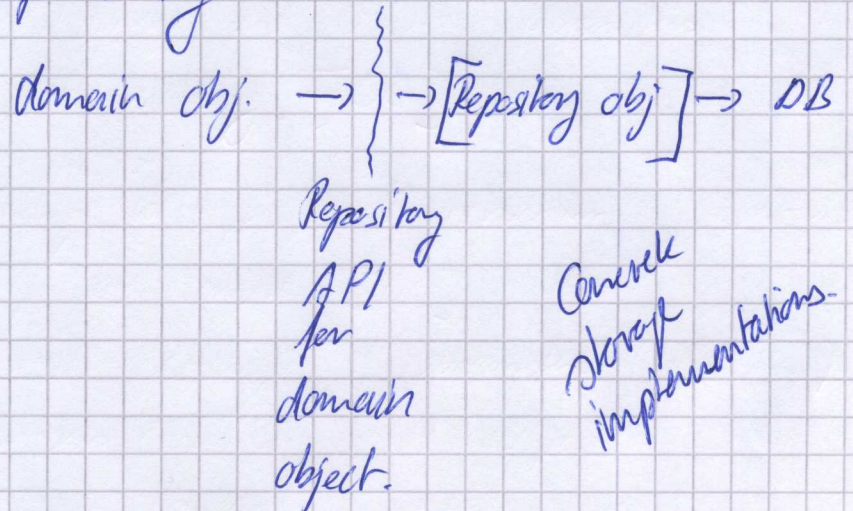 domain obj. → → [Repository obj] → DB
Repository
API
for
domain
object.
Concrete
storage
implementations.